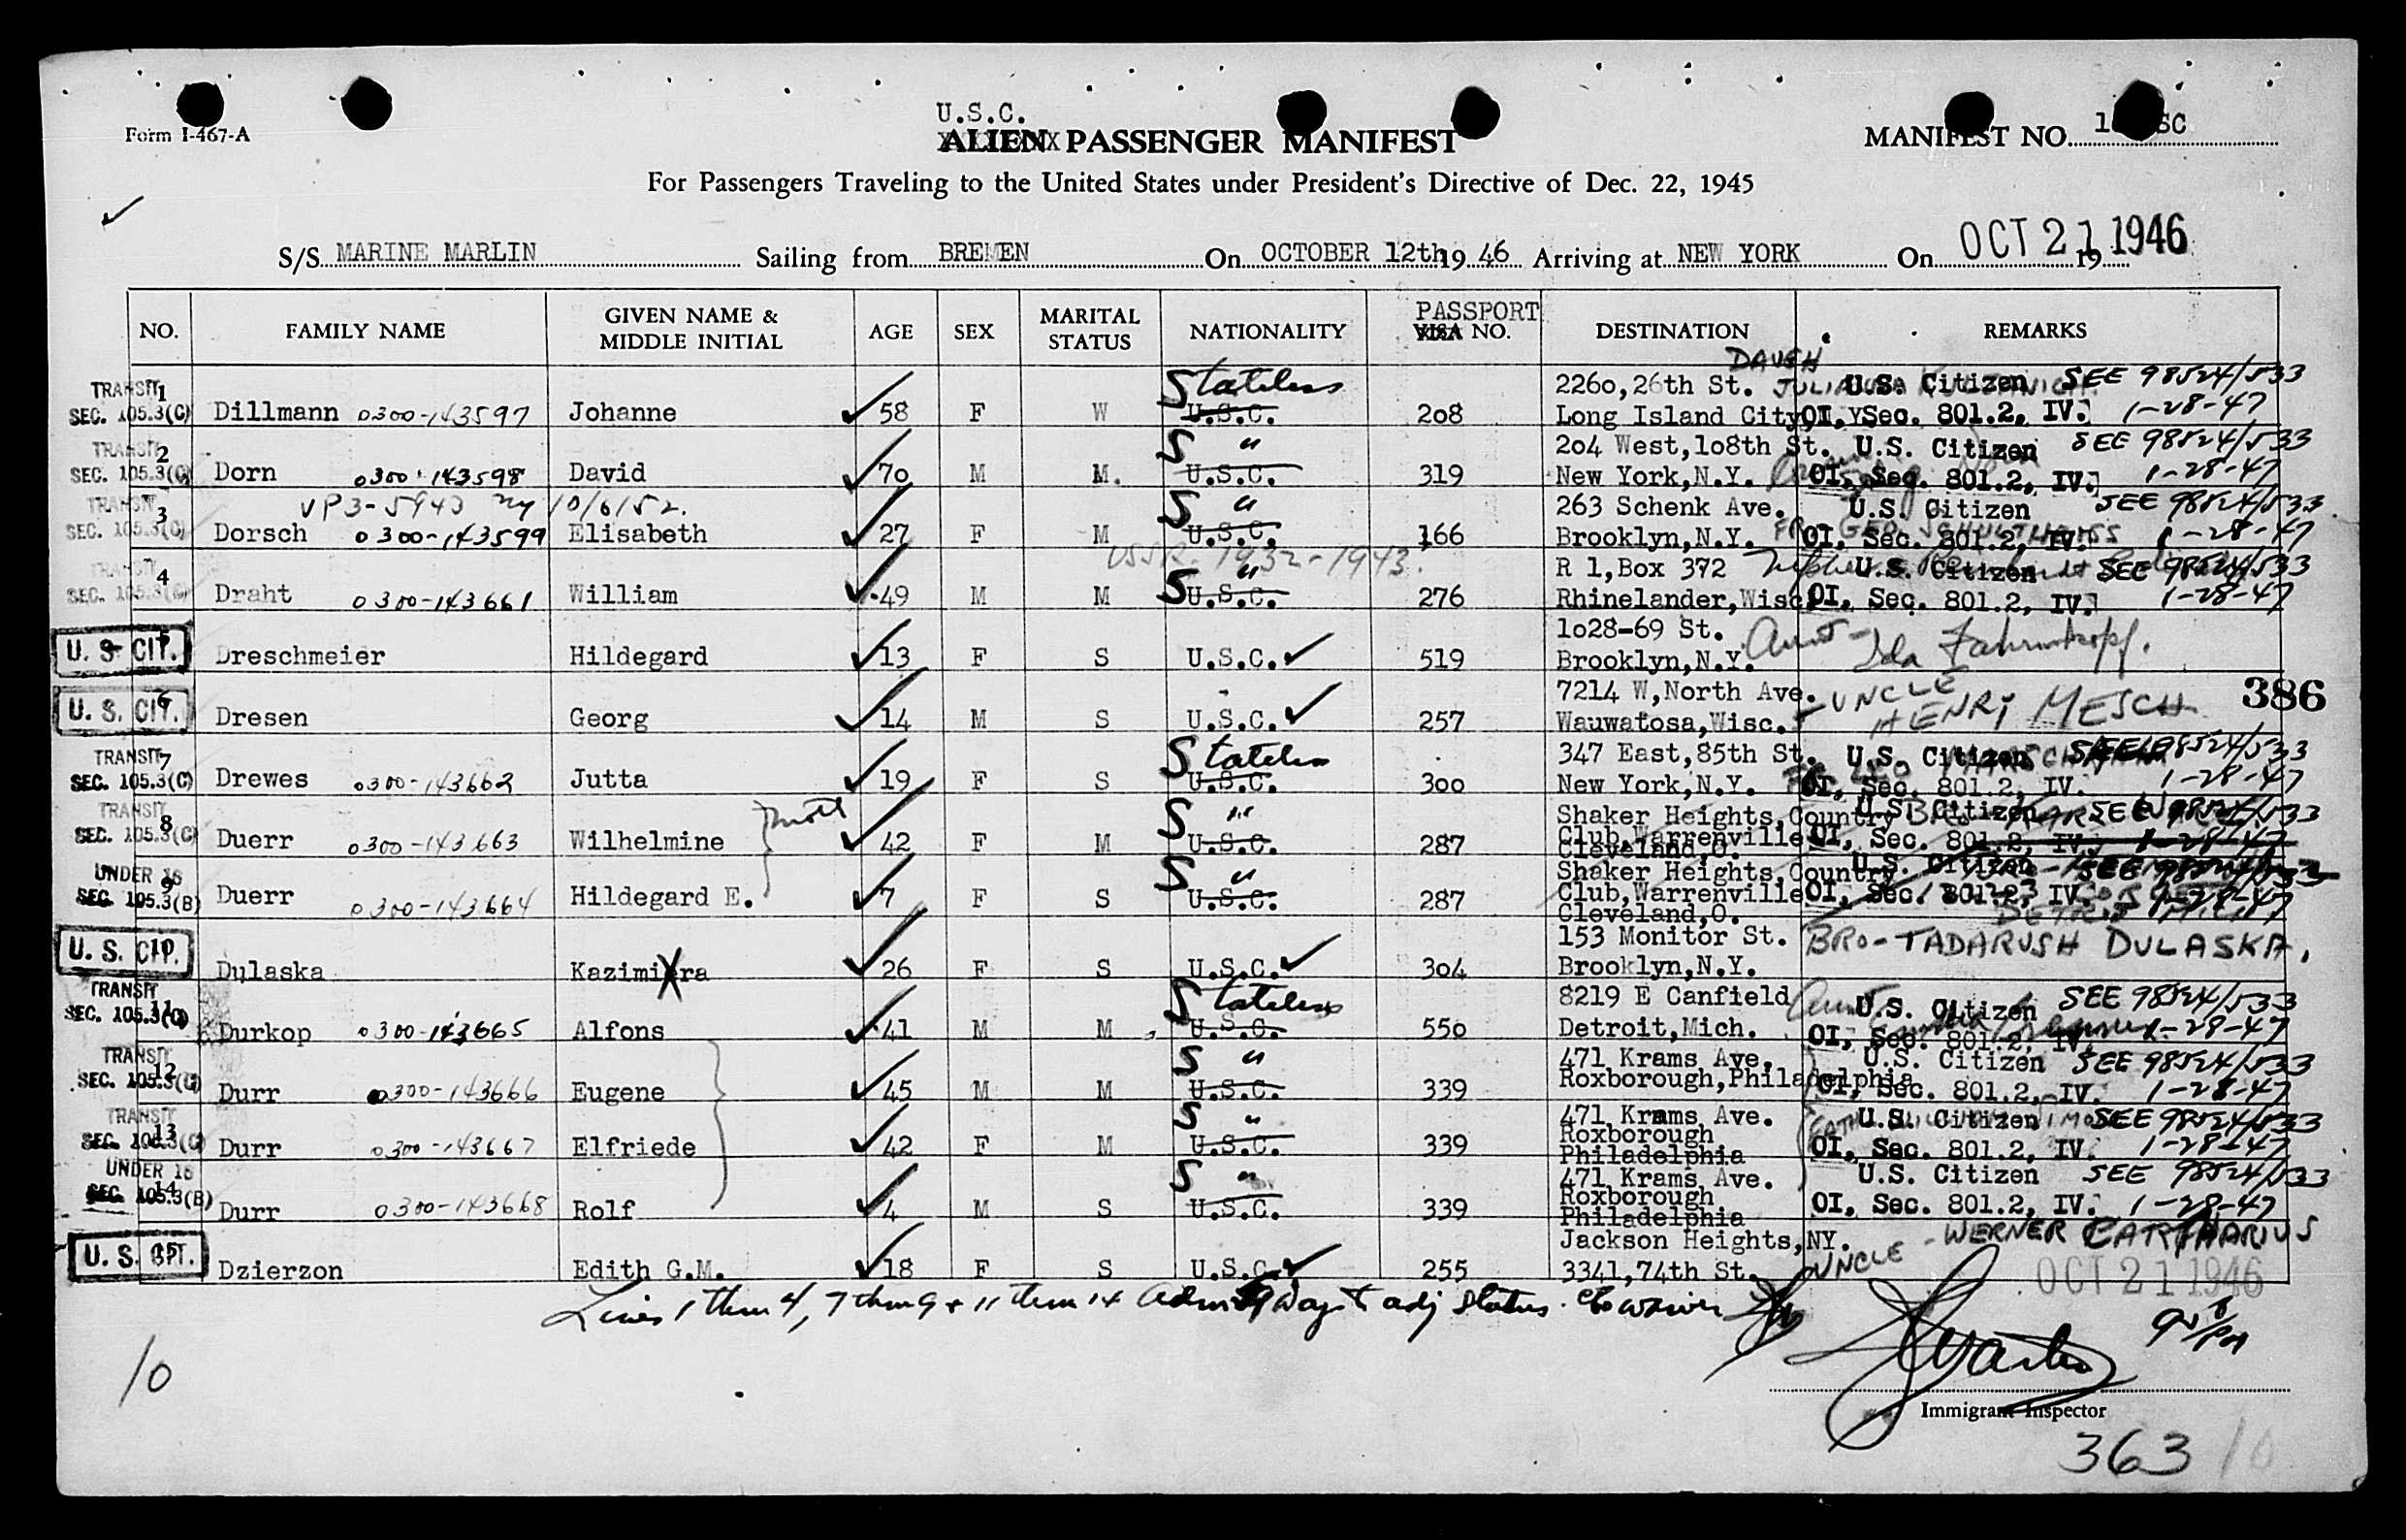 U.S.C.
Form I-467-A
ALIEN PASSENGER MANIFEST
MANIFEST NO. SC
For Passengers Traveling to the United States under President's Directive of Dec. 22, 1945
S/S MARINE MARLIN Sailing from BREMEN On OCTOBER 12th 19 46 Arriving at NEW YORK On OCT 21 1946 19
NO. FAMILY NAME GIVEN NAME & MIDDLE INITIAL AGE SEX MARITAL STATUS NATIONALITY PASSPORT VISA NO. DESTINATION REMARKS
DAUGH
TRANSIT 1 Stateless 2260,26th St. U.S. Citizen SEE 98524/533
SEC. 105.3(C) Dillmann 0300-143597 Johanne 58 F W U.S.C. 208 Long Island City OI, Sec. 801.2, IV. 1-28-47
TRANSIT 2 S " 204 West,108th St. U.S. Citizen SEE 98524/533
SEC. 105.3(C) Dorn 0300-143598 David 70 M M. U.S.C. 319 New York,N.Y. OI, Sec. 801.2, IV. 1-28-47
TRANSIT 3 VP3-5943 ny 10/6/52. S " 263 Schenk Ave. U.S. Citizen SEE 98524/533
SEC. 105.3(C) Dorsch 0300-143599 Elisabeth 27 F M U.S.C. 166 Brooklyn,N.Y. OI, Sec. 801.2, IV. 1-28-47
USSR. 1932-1943.
TRANSIT 4 S " R 1,Box 372 U.S. Citizen SEE 98524/533
SEC. 105.3(C) Draht 0300-143661 William 49 M M U.S.C. 276 Rhinelander,Wisc. OI, Sec. 801.2, IV. 1-28-47
1028-69 St. Aunt -
U. S. CIT. 5 Dreschmeier Hildegard 13 F S U.S.C. 519 Brooklyn,N.Y. Ida
7214 W,North Ave. UNCLE 386
U. S. CIT. 6 Dresen Georg 14 M S U.S.C. 257 Wauwatosa,Wisc. HENRY MESCH
TRANSIT 7 Stateless 347 East,85th St. U.S. Citizen SEE 98524/533
SEC. 105.3(C) Drewes 0300-143662 Jutta 19 F S U.S.C. 300 New York,N.Y. OI, Sec. 801.2, IV. 1-28-47
TRANSIT 8 S " Shaker Heights,Country U.S. Citizen SEE 98524/533
SEC. 105.3(C) Duerr 0300-143663 Wilhelmine 42 F M U.S.C. 287 Club,Warrenville OI, Sec. 801.2, IV. 1-28-47
Cleveland,O.
UNDER 16 9 S " Shaker Heights,Country U.S. Citizen SEE 98524/533
SEC. 105.3(B) Duerr 0300-143664 Hildegard E. 7 F S U.S.C. 287 Club,Warrenville OI, Sec. 801.2, IV. 1-28-47
Cleveland,O.
153 Monitor St. BRO-TADARUSH DULASKA.
U. S. CIT. 10 Dulaska Kazimira 26 F S U.S.C. 304 Brooklyn,N.Y.
TRANSIT 11 Stateless 8219 E Canfield Aunt U.S. Citizen SEE 98524/533
SEC. 105.3(C) Durkop 0300-143665 Alfons 41 M M U.S.C. 550 Detroit,Mich. OI, Sec. 801.2, IV. 1-28-47
TRANSIT 12 S " 471 Krams Ave, U.S. Citizen SEE 98524/533
SEC. 105.3(C) Durr 0300-143666 Eugene 45 M M U.S.C. 339 Roxborough,Philadelphia OI, Sec. 801.2, IV. 1-28-47
TRANSIT 13 S " 471 Krams Ave. U.S. Citizen SEE 98524/533
SEC. 105.3(C) Durr 0300-143667 Elfriede 42 F M U.S.C. 339 Roxborough OI, Sec. 801.2, IV. 1-28-47
Philadelphia
UNDER 16 14 S " 471 Krams Ave. U.S. Citizen SEE 98524/533
SEC. 105.3(B) Durr 0300-143668 Rolf 4 M S U.S.C. 339 Roxborough OI, Sec. 801.2, IV. 1-28-47
Philadelphia
Jackson Heights,NY. UNCLE - WERNER
U. S. CIT. 15 Dzierzon Edith G.M. 18 F S U.S.C. 255 3341,74th St. OCT 21 1946
Lines 1 thru 4, 7 thru 9 + 11 thru 14 Adm Days to adj status.
10
Immigrant Inspector
363 10